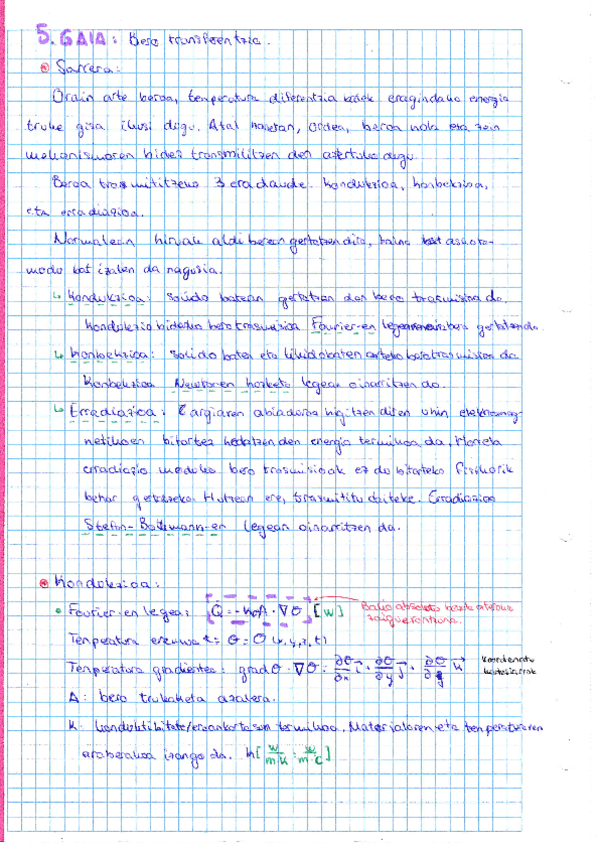 5. GAIA: Bero transferentzia.
Sarrera:
Orain arte beroa, tenperatura diferentzia batek eragindako energia
truke gisa ikusi dugu. Atal honetan, ordea, beroa nola eta zein
mekanismoren bidez transmititzen den aztertuko dugu.
Beroa trasmititzeko 3 era daude: kondukzioa, konbekzioa,
eta erradiazioa.
Normalean hirurak aldi berean gertatzen dira, baina bat askota-
modu bat izaten da nagusia.
↳ Kondukzioa: Solido batean gertatzen den bero trasmisioa da.
Kondukzio bidezko bero trasmisioa Fourier-en legearen arabera gertatzen da.
↳ Konbekzioa: Solido baten eta likido baten arteko bero trasmisioa da
Konbekzioa Newton-en hozketa legean oinarritzen da.
↳ Erradiazioa: Argiaren abiaduran higitzen diren uhin elektromag-
netikoen bitartez hedatzen den energia termikoa da. Honela
erradiazio moduko bero trasmisioak ez du bitarteko fisikorik
behar gertatzeko. Hutsean ere, trasmititu daiteke. Erradiazioa
Stefan-Boltzmann-en legean oinarritzen da.
Kondukzioa:
• Fourier-en legea: Q̇ = -k·A·∇θ [W] Balio absolutua
Tenperatura eremua t: θ = θ (x,y,z,t)
Tenperatura gradientea: grad θ · ∇θ = ∂θ/∂x i + ∂θ/∂y j + ∂θ/∂z k
A: bero trukaketa azalera.
K: konduktibitate/eroankortasun termikoa. Materialaren eta tenperaturaren
araberakoa izango da. k [W/m·K = W/m·C]